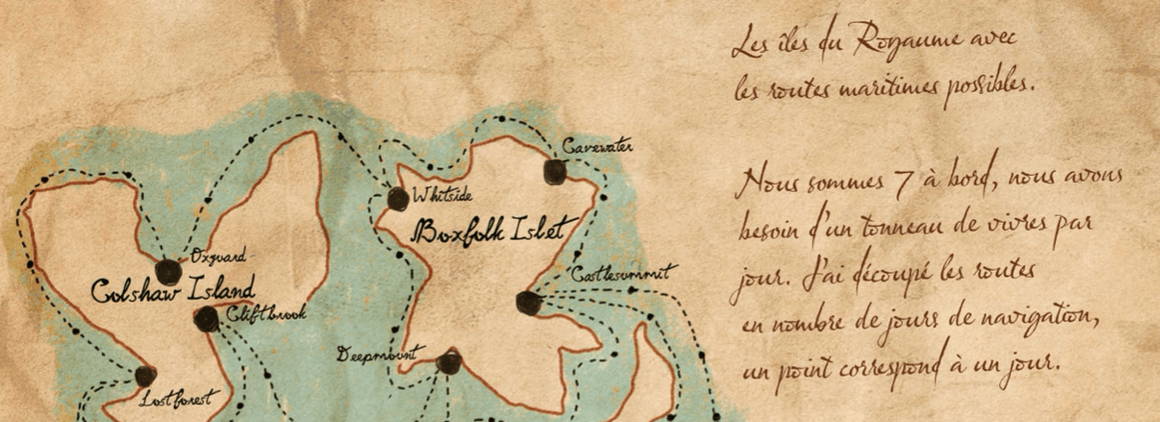 Les îles du Royaume avec
les routes maritimes possibles.
Nous sommes 7 à bord, nous avons
besoin d'un tonneau de vivres par
jour. J'ai découpé les routes
en nombre de jours de navigation,
un point correspond à un jour.
Cavewater
Whitside
Boxfolk Islet
Oxguard
Castlesummit
Colshaw Island
Cliftbrook
Deepmount
Lostforest